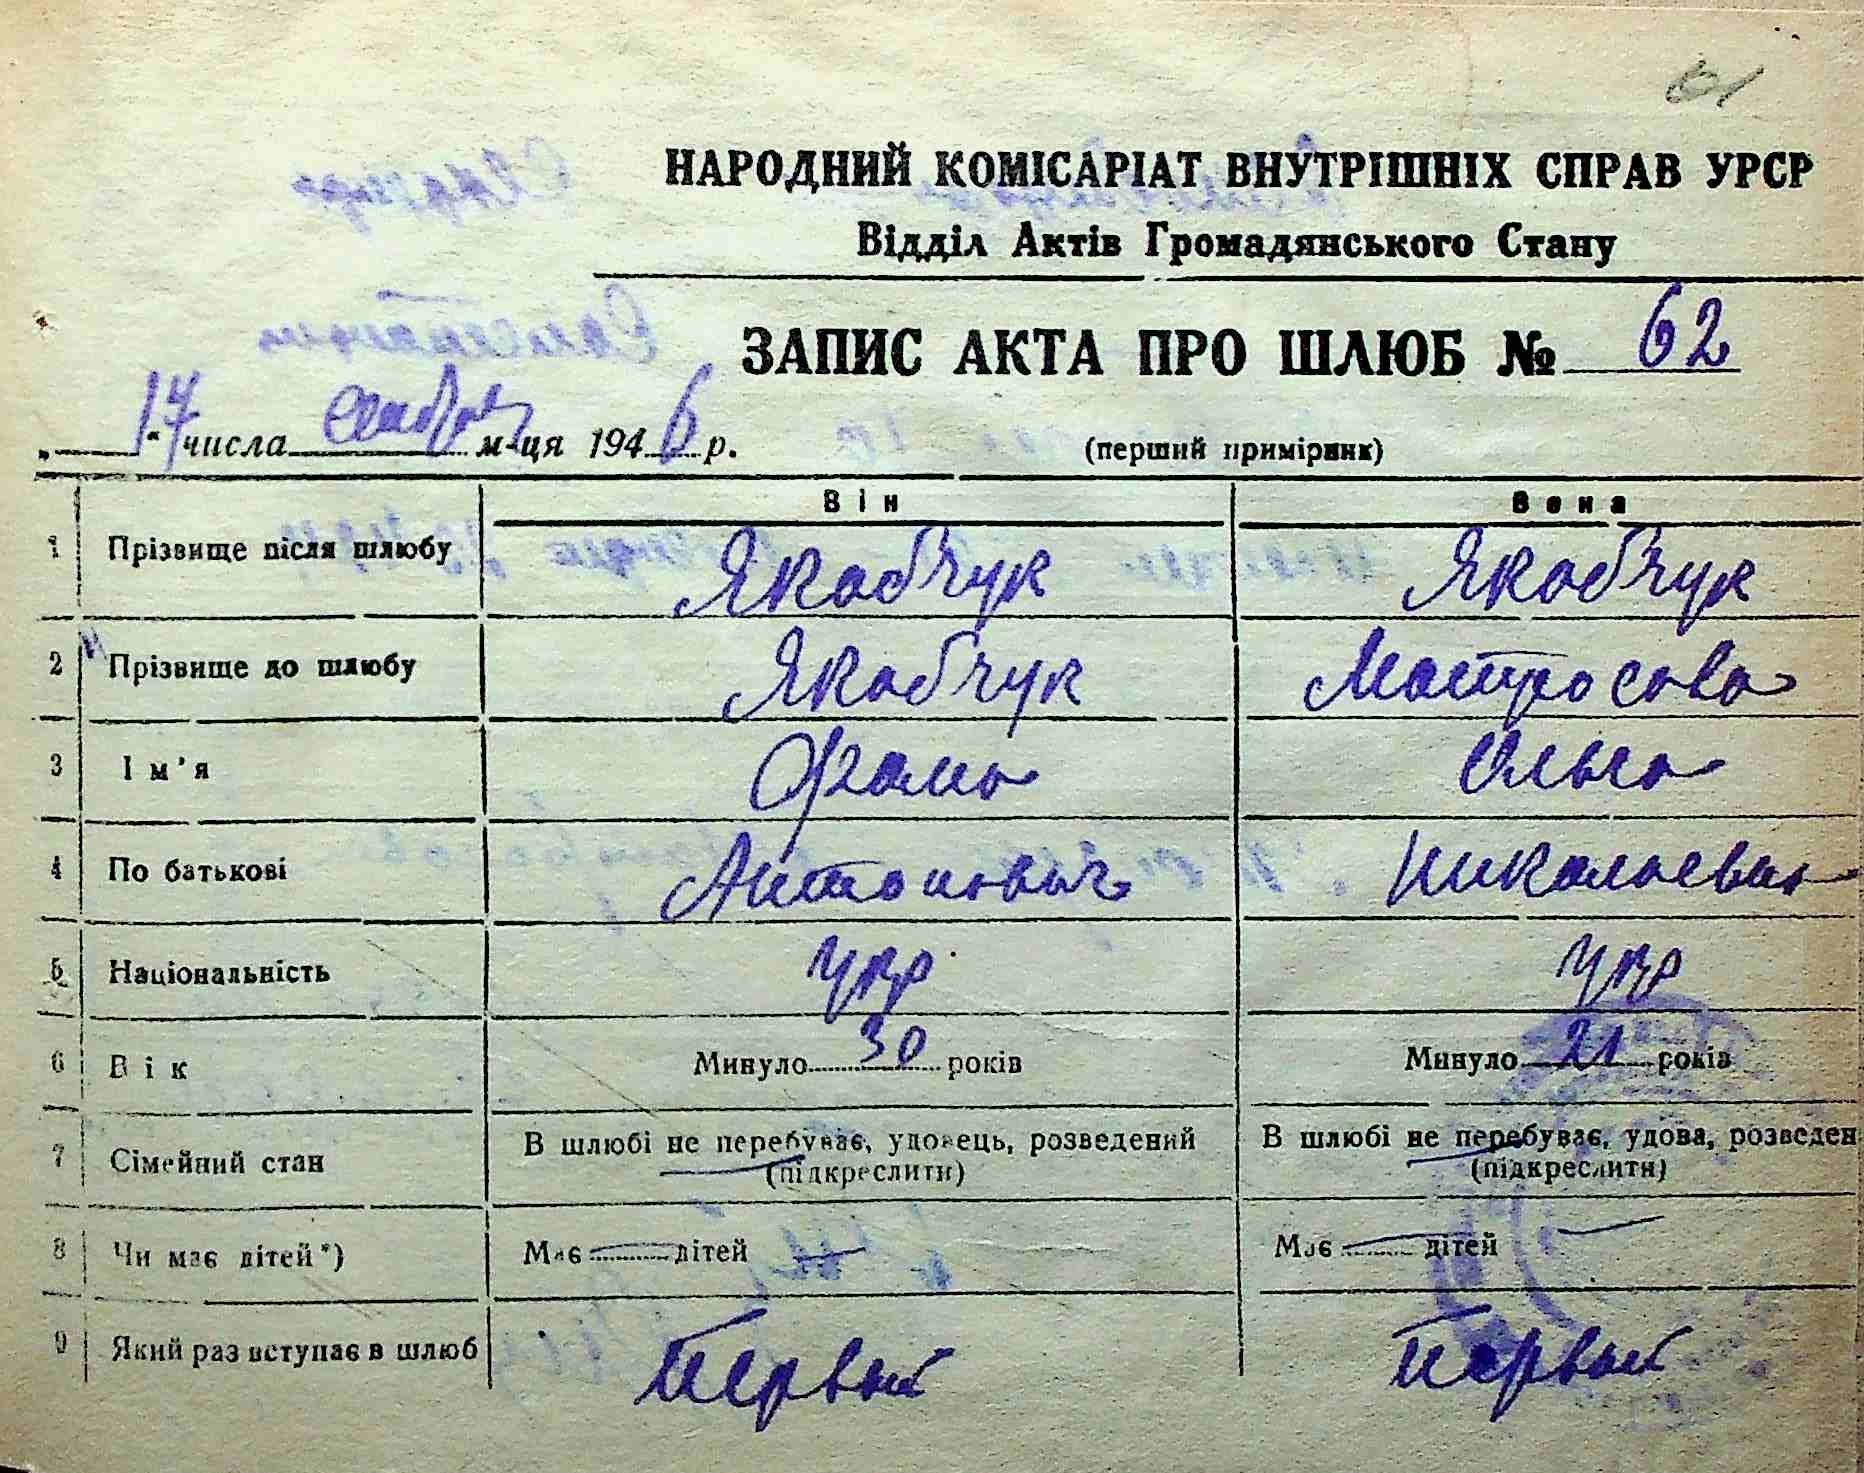 НАРОДНИЙ КОМІСАРІАТ ВНУТРІШНІХ СПРАВ УРСР
Відділ Актів Громадянського Стану
ЗАПИС АКТА ПРО ШЛЮБ № 62
17 " числа м-ця 1946 р. (перший примірник)
Він Вона
1 Прізвище після шлюбу Якобчук Якобчук
2 Прізвище до шлюбу Якобчук Матросова
3 Ім'я Ольга
4 По батькові Антонович Николаевна
5 Національність укр укр
6 Вік Минуло 30 років Минуло 21 років
7 Сімейний стан В шлюбі не перебуває, удовець, розведений В шлюбі не перебуває, удова, розведен
(підкреслити) (підкреслити)
8 Чи має дітей*) Має — дітей — Має — дітей —
9 Який раз вступає в шлюб Первый Первый